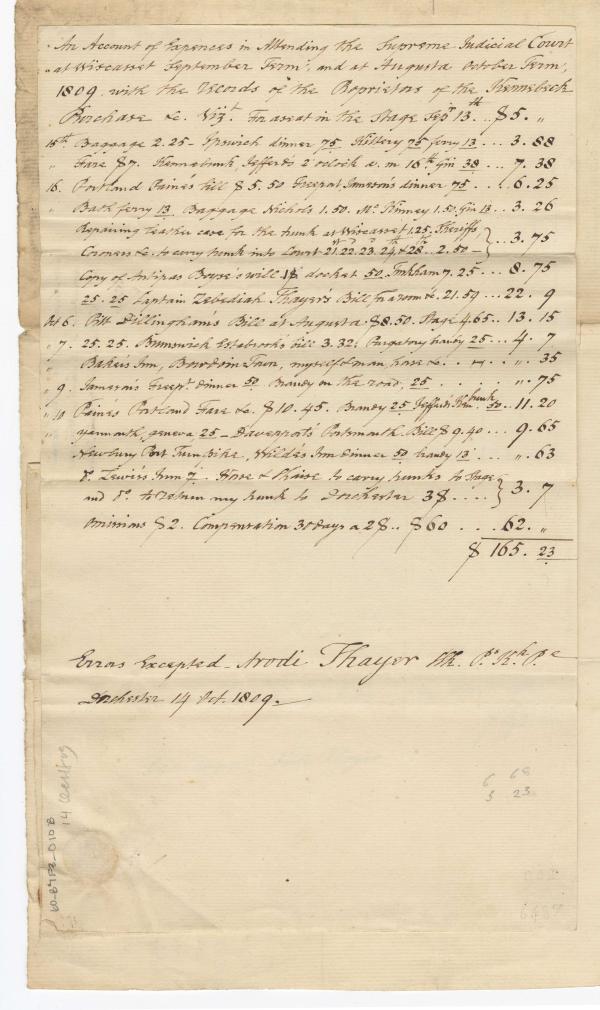 An Account of Expences in Attending the Supreme Judicial Court
at Wiscasset September Term, and at Augusta October Term,
1809 with the Records of the Proprietors of the Kennebeck
Purchase &c. Viz.t For a seat in the Stage Sepr 13.th .. $5. "
15th Baggage 2.25 - Ipswich dinner 75 Kittery 75 ferry 13 ... 3. 88
" Fare $7. Kennebunk, Jefferds 2 oclock a. m 16th Gin 38 .. 7. 38
16. Portland Paine's bill $5.50 Freeport Jameson's dinner 75 ... 6. 25
" Bath ferry 13 Baggage Nichols 1.50. Mc Kenney 1.50. Gin 13 .. 3. 26
Repairing leather case for the trunk at Wiscasset 1.25. Sheriffs
Coroners &c. to carry trunk into Court 21st 22d 23d 24th & 28th .. 2.50 - } .. 3. 75
Copy of Antipas Bowse's will 1$ docket 50. Tinkham 7.25 ... 8. 75
25. 25 Captain Zebediah Thayer's Bill for room &c. 21.59 ... 22. 9
Oct 6. Pitt Dillingham's Bill at Augusta $8.50. Stage 4.65 .. 13. 15
" 7. 25. 25. Brunswick Estabrooks bill 3.32. Purgatory brandy 25 ... 4. 7
" Baker's Inn, Bowdoin Town, myself & man, horse &c. . . . . ". 35
" 9. Jameson's Freept. dinner 50 Brandy on the road, 25 . . . . ". 75
" 10 Paine's Portland Fare &c. $10. 45. Brandy 25 Jefferds Kenebunk 50 .. 11. 20
" Yarmouth, geneva 25 - Davenport's Portsmouth. Bill $9.40 ... 9. 65
Newbury Port Turnpike, Wilde's Inn dinner 50 brandy 13 ... ". 63
Do. Lewis's Inn 7. Horse & Chaise to carry trunks to Stage
and Do. to return my trunk to Dorchester 3$ .... } 3. 7
Omissions $2. Compensation 30 days a 2$ .. $60 ... 62. "
$ 165. 23
Errors Excepted - Arodi Thayer
Dorchester 14 Oct. 1809.
6 68
5 23
14 Oct 1809